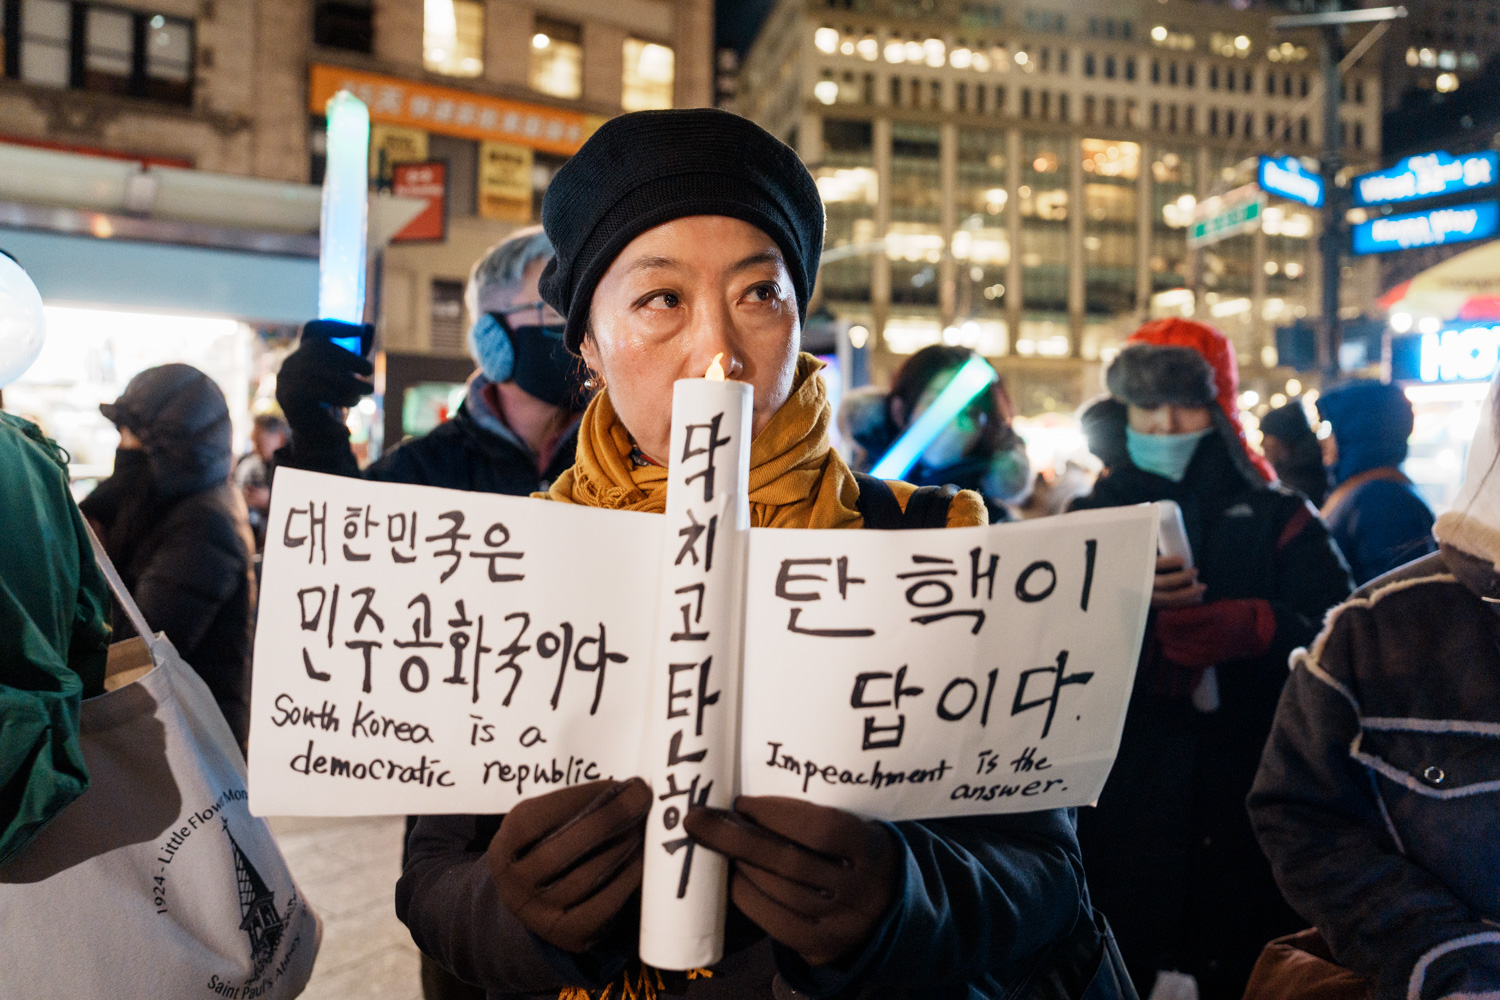 대한민국은
민주공화국이다
South Korea is a
democratic republic.
닥치고탄핵
탄핵이
답이다.
Impeachment is the
answer.
West 32nd St
Korea Way
1924 - Little Flower Mon
Saint Paul's Abbey